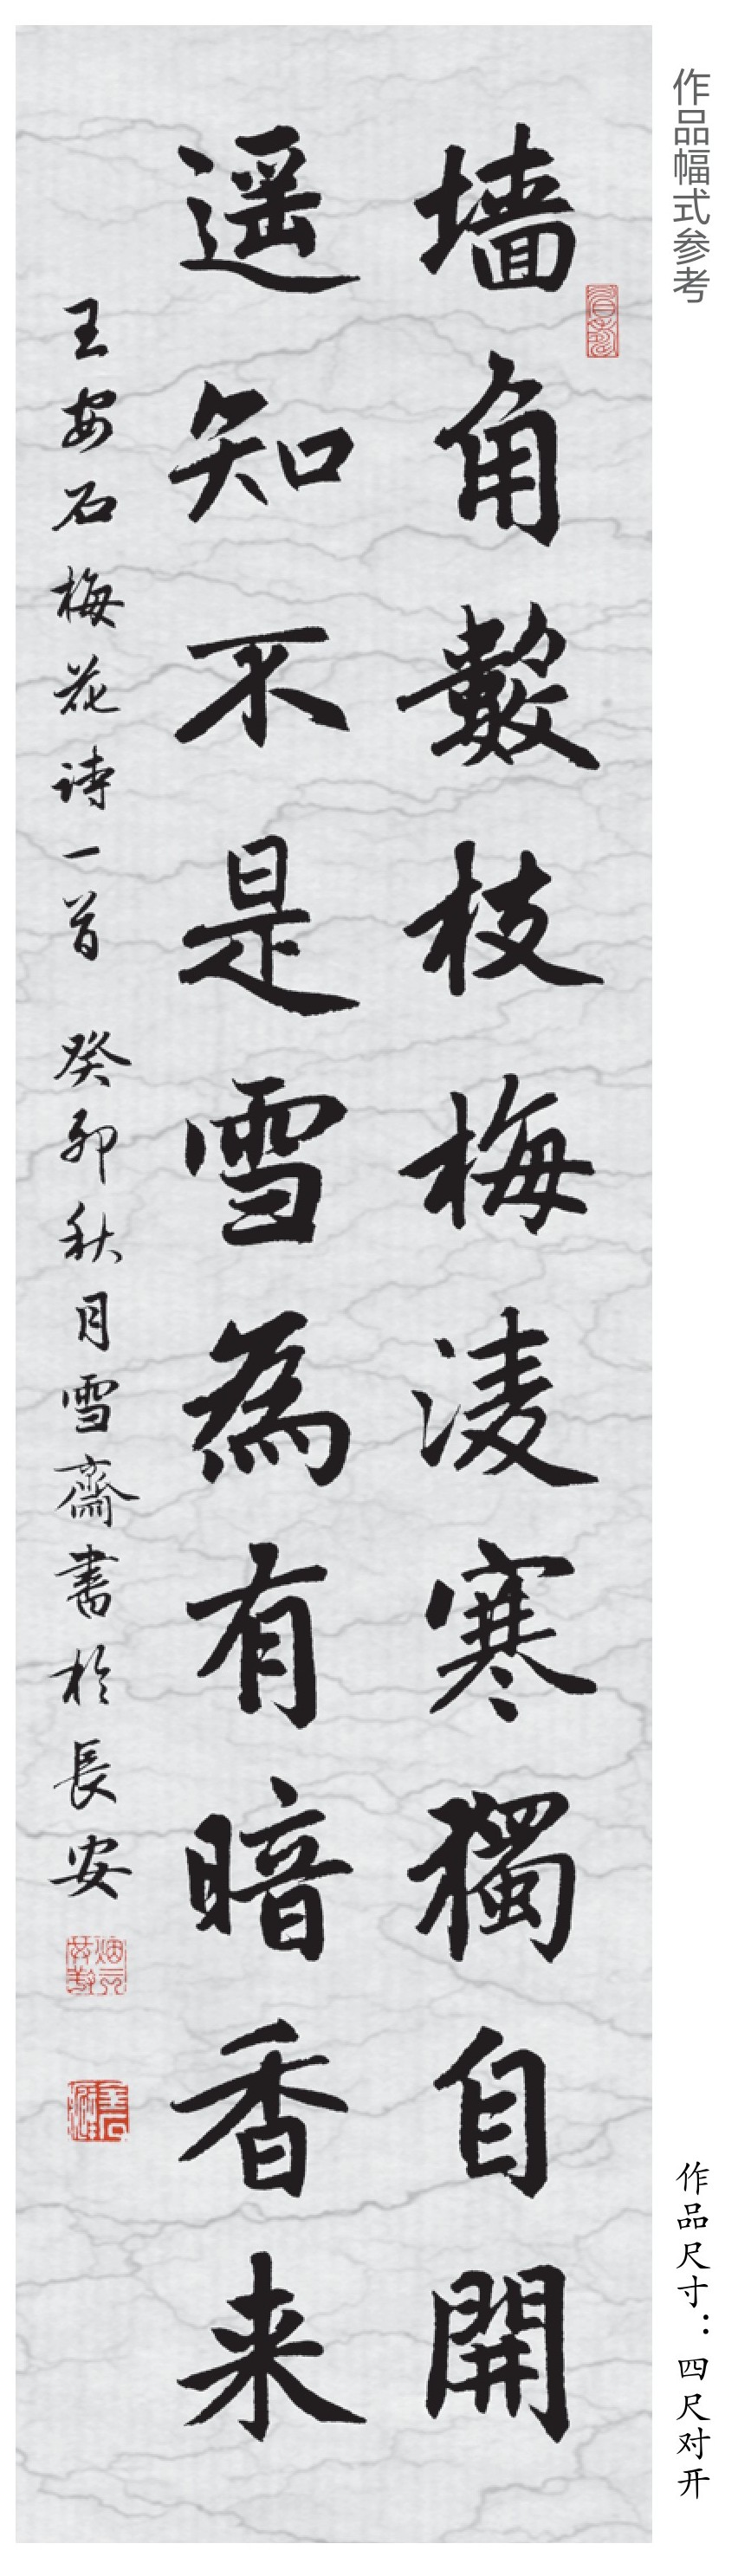 作品幅式参考
墙角數枝梅凌寒獨自開
遥知不是雪為有暗香来
王安石梅花诗一首 癸卯秋月雪齋書於長安
作品尺寸：四尺对开